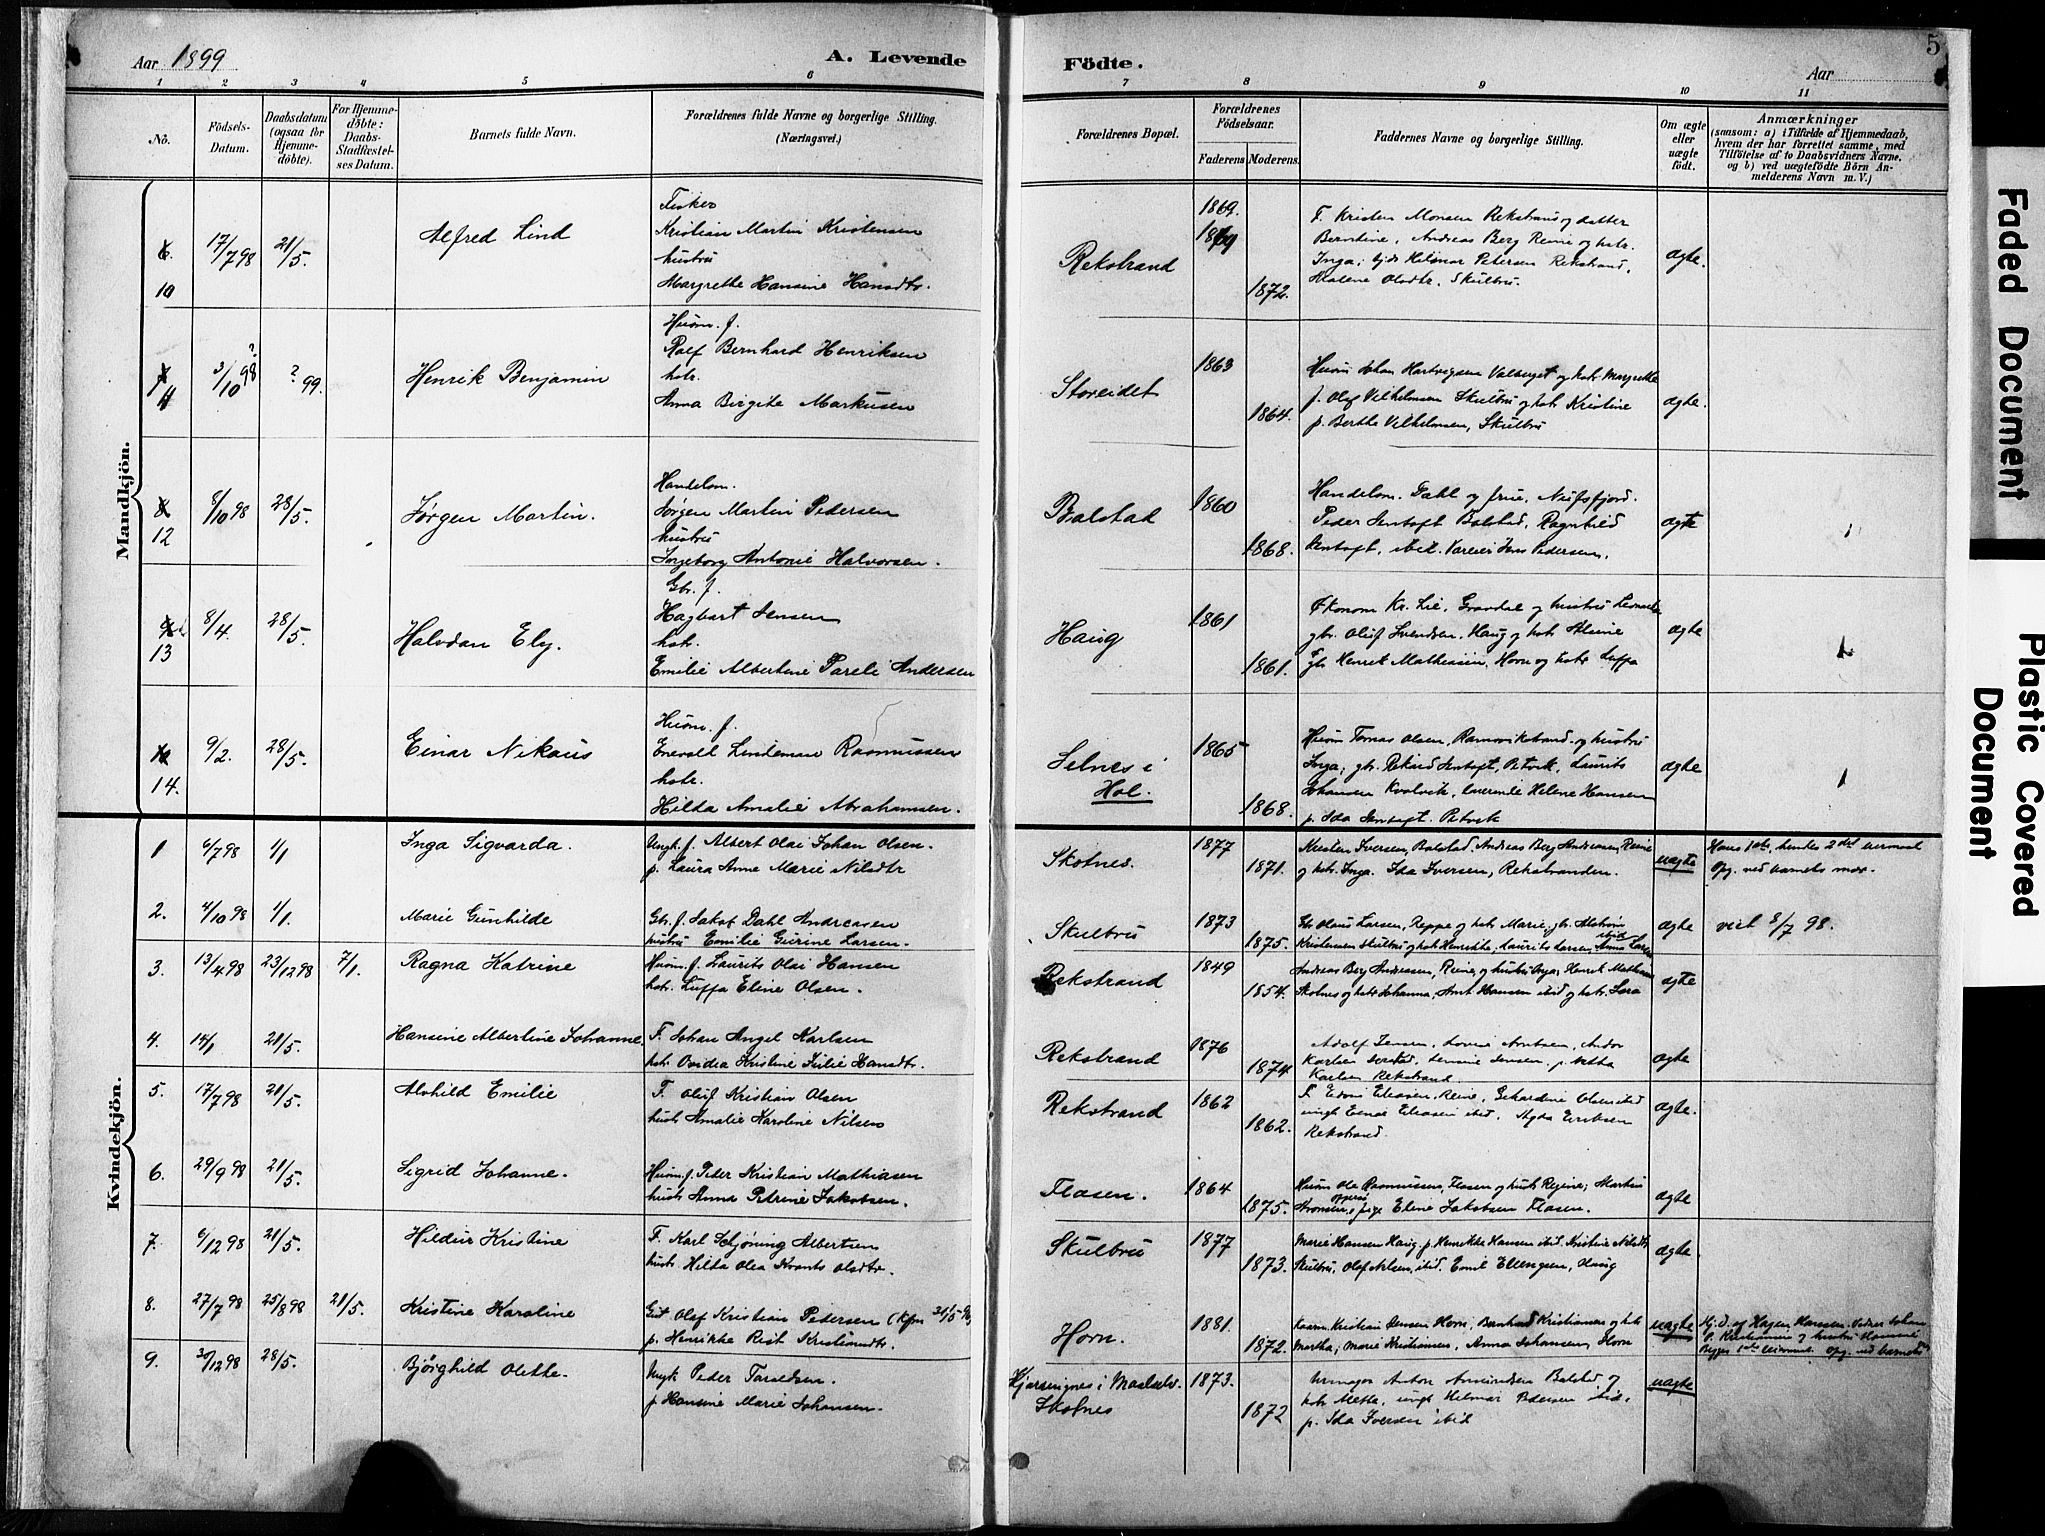 Aar 1899
A. Levende Födte.
Aar
5
1 2 3 4 5 6 7 8 9 10 11
No.
Födsels-Datum.
Daabsdatum (ogsaa for Hjemme-döbte).
For Hjemme-döbte: Daabs-Stadfæstel-ses Datum.
Barnets fulde Navn.
Forældrenes fulde Navne og borgerlige Stilling. (Næringsvei.)
Forældrenes Bopæl.
Forældrenes Födselsaar.
Faderens Moderens.
Faddernes Navne og borgerlige Stilling.
Om ægte eller uægte födt.
Anmærkninger
(saasom: a) i Tilfælde af Hjemmedaab,
hvem der har forrettet samme, med
Tilföielse af to Daabsvidners Navne.
og b) ved uægtefödte Börn An-
melderens Navn m. V.)
Mandkjön.
10 17/7 98 21/5. Alfred Lind
Fisker
Kristian Martin Kristensen
hustru
Margrethe Hansine Hansdtr.
Rekstrand 1869. 1872.
F. Kristen Monsen Rekstrand og datter
Berntine, Andreas Berg Reine og hstr.
Inga; Hilmar Petersen Rekstrand,
Malene Olsdtr. Skulbru.
ægte.
11 3/10 98? ? 99. Henrik Benjamin
Husm. f.
Rolf Bernhard Henriksen
hstr.
Anna Birgite Markusen
Storeidet 1863 1864.
Husm Johan Hartvigsen Valberget og hstr Margrethe
f. Olaf Vilhelmsen Skulbru og hstr Kristine
p. Berthe Vilhelmsen, Skulbru
ægte.
12 8/10 98 28/5. Jørgen Martin.
Handelsm.
Jørgen Martin Pedersen
hustru
Ingeborg Antonie Halvorsen.
Balstad 1860 1868.
Handelsm. Dahl og frue, Nufsfjord.
Peder Jentoft Balstad, Ragnhild
Jentoft, ibid. Jens Pedersen.
ægte
13 8/4. 28/5. Halvdan Ely.
Gbr. f.
Hagbart Jensen
hstr.
Emilie Albertine Pareli Andersen
Haug 1861 1861.
Økonom Kr. Lie, Gravdal og hustru
gbr. Oluf Svendsen, Haug og hstr
gbr Henrik Mathiasen, Horn og hstr Luffa
ægte
14. 9/2. 28/5. Einar Nikaus
Husm. f.
Enevold Lindeman Rasmussen
hstr.
Hilda Amalie Abrahamsen.
Selnes i Hol. 1865 1868.
Husm Tomas Olsen, Ramsvikstrand og hustru
Inga; gbr. Rikard Jentoft, Petvik, Laurits
Johansen Kvalvik, Helene Hansen
p. Ida Jentoft. Petvik
ægte
Kvindekjön.
1 6/7 98 1/1 Inga Sigvarda.
Ungk. f. Albert Olai Johan Olsen.
p. Laura Anne Marie Nilsdtr
Skotnes. 1877 1871.
Kristen Iversen, Balstad, Andreas Berg Andreassen, Reine
og hstr. Inga. Ida Iversen, Rekstranden.
uægte
Hans 1ste, hendes 2det leiermaal
Opg. ved barnets mor.
2. 4/10 98 1/1. Marie Gunhilde
Gbr. f. Jakob Dahl Andreasen
hustru Emilie Gurine Larsen.
Skulbru 1873 1875.
Gbr Olaus Larsen, Reppe og hstr Marie, gbr.
Kristensen Skulbru og hstr Henrikke; Laurits Larsen, ibid Anna Larsen
ægte viet 8/7 98.
3. 13/4 98 23/12 98 7/1. Ragna Katrine
Husm. f. Laurits Olai Hansen
hstr. Luffa Eline Olsen.
Rekstrand 1849 1854.
Andreas Berg Andreassen, Reine, og hustru Inga; Henrik Mathisen
Skotnes og hstr Johanna, Hansen ibid og hstr. Sara
ægte
4. 14/1 21/5. Hansine Albertine Johanne
F. Johan Angel Karlsen
hstr Ovidia Kristine Julie Hansdtr.
Rekstrand 1876 1874.
Adolf Jensen, Lovise Arntsen, Andor
Karlsen Jensen, p.
Karlsen Rekstrand.
ægte
5. 17/7 98 21/5. Alvhild Emilie
F. Oluf Kristian Olsen
hustr Amalie Karoline Nilsen
Rekstrand 1862 1862.
F. Edvin Eliasen, Reine, Gehardine Olsen ibid
ungk Einar Eliasen ibid. Agda Eriksen
Rekstrand.
ægte.
6. 29/9 98 21/5. Sigrid Johanne.
Husm. f. Peder Kristian Mathiasen
hustr Anna Petrine Jakobsen.
Flosen. 1864 1875.
Husm Ole Rasmussen, Flosen og hustr Regine; Martin
pige Eline Jakobsen Flosen.
ægte
7. 6/12 98 21/5. Hildur Kristine
F. Karl Schjøning Albertsen
hustr. Hilda Olea Krants Olsdtr.
Skulbru 1877 1873.
Marie Hansen Haug, p. Henrikke Hansen ibid, Kristine Nilsdtr
Skulbru, Olaf Nilsen, ibid. Emil Ellingsen, Haug
ægte
8. 27/7 98 25/8 98 21/5. Kristine Karoline
Gut Olaf Kristian Pedersen (kfm
p. Henrikke Rist Kristiansdtr.
Horn. 1881. 1872.
Kristian Jensen Horn; Bernhard Kristiansen og hstr
Martha; Marie Kristiansen, Anna Johansen, Horn
uægte
Hj. d. af Hagen Hansen. Vidner Johan
P. Kristiansen og hustru
Begges 1ste leiermaal. Opg. ved barnets
9. 30/12 98 28/5. Bjørghild Olette.
Ungk Peder Taraldsen.
p Hansine Marie Johansen.
i Maalselv. Skotnes 1873. 1872
Urmager Anton Amundsen Balstad og
hstr Mette, ungk Hilmar Pedersen ibid,
p. Ida Iversen ibid
uægte
Faded Document
Plastic Covered Document